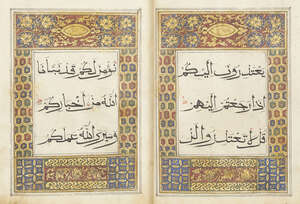 يعتذرون اليكم
اذا رجعتم اليهم
قل لا تعتذروا لن
نؤمن لكم قد نبأنا
الله من اخباركم
وسيرى الله عملكم